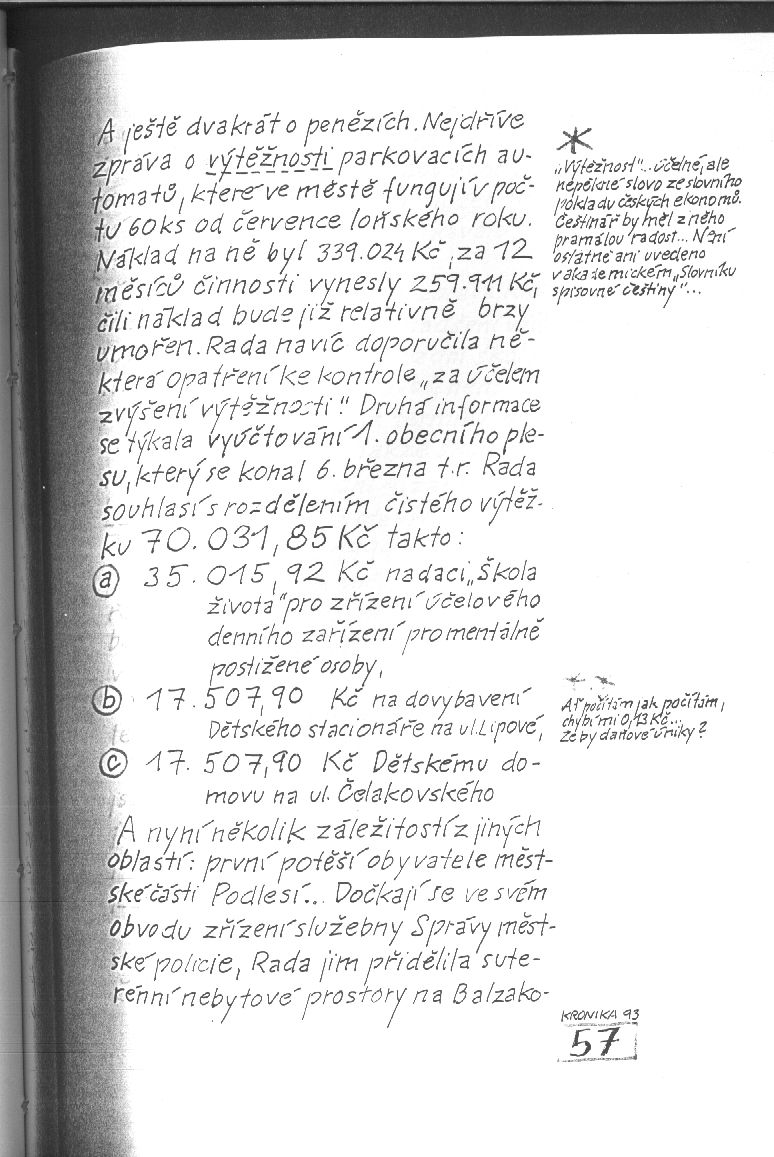 A ještě dvakrát o penězích. Nejdříve
zpráva o výtěžnosti parkovacích au-
tomatů, které ve městě fungují v poč-
tu 60 ks od července loňského roku.
Náklad na ně byl 339.024 Kč, za 12
měsíců činnosti vynesly 259.911 Kč,
čili náklad bude již relativně brzy
umořen. Rada navíc doporučila ně-
která opatření ke kontrole „za účelem
zvýšení výtěžnosti!" Druhá informace
se týkala vyúčtování 1. obecního ple-
su, který se konal 6. března t.r. Rada
souhlasí s rozdělením čistého výtěž-
ku 70.031,85 Kč takto:
a 35.015,92 Kč nadaci „Škola
života" pro zřízení účelového
denního zařízení pro mentálně
postižené osoby,
b 17.507,90 Kč na dovybavení
Dětského stacionáře na ul. Lipové,
c 17.507,90 Kč Dětskému do-
movu na ul. Čelakovského
A nyní několik záležitostí z jiných
oblastí: první potěší obyvatele měst-
ské části Podlesí... Dočkají se ve svém
obvodu zřízení služebny Správy měst-
ské policie, Rada jim přidělila sute-
rénní nebytové prostory na Balzako-
*
„Výtěžnost"... účelné, ale
nepěkné slovo ze slovního
pokladu českých ekonomů.
Češtinář by měl z něho
pramálou radost... Není
ostatně ani uvedeno
v akademickém „Slovníku
spisovné češtiny"...
* *
Ať počítám jak počítám,
chybí mi 0,13 Kč...
Že by daňové úniky?
KRONIKA 93
57